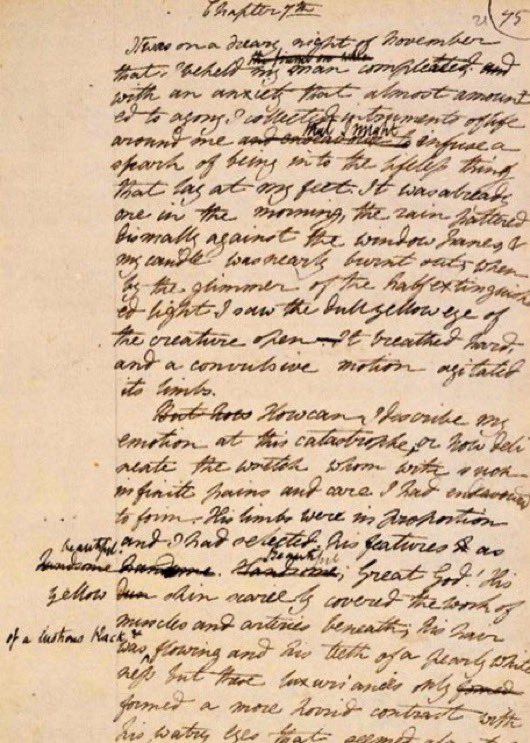 Chapter 7th
75
21
It was on a dreary night of November
the frame on whic
that I beheld my man compleated and
with an anxiety that almost amount
ed to agony, I collected instruments of life
that I might
around me and to infuse a
spark of being into the lifeless thing
that lay at my feet. It was already
one in the morning, the rain pattered
dismally against the window panes &
my candle was nearly burnt out, when
by the glimmer of the half extinguish
ed light I saw the dull yellow eye of
the creature open – It breathed hard,
and a convulsive motion agitated
its limbs.
But how How can I describe my
emotion at this catastrophe, or how deli
neate the wretch whom with such
infinite pains and care I had endeavoured
to form. His limbs were in proportion
and I had selected his features as
beautiful
Beautiful
handsome handsome. Handsome; Great God! His
yellow dun skin scarcely covered the work of
muscles and arteries beneath; his hair
of a lustrous black &
was flowing and his teeth of a pearly white
ness but these luxuriances only formed
formed a more horrid contrast with
his watry eyes that seemed